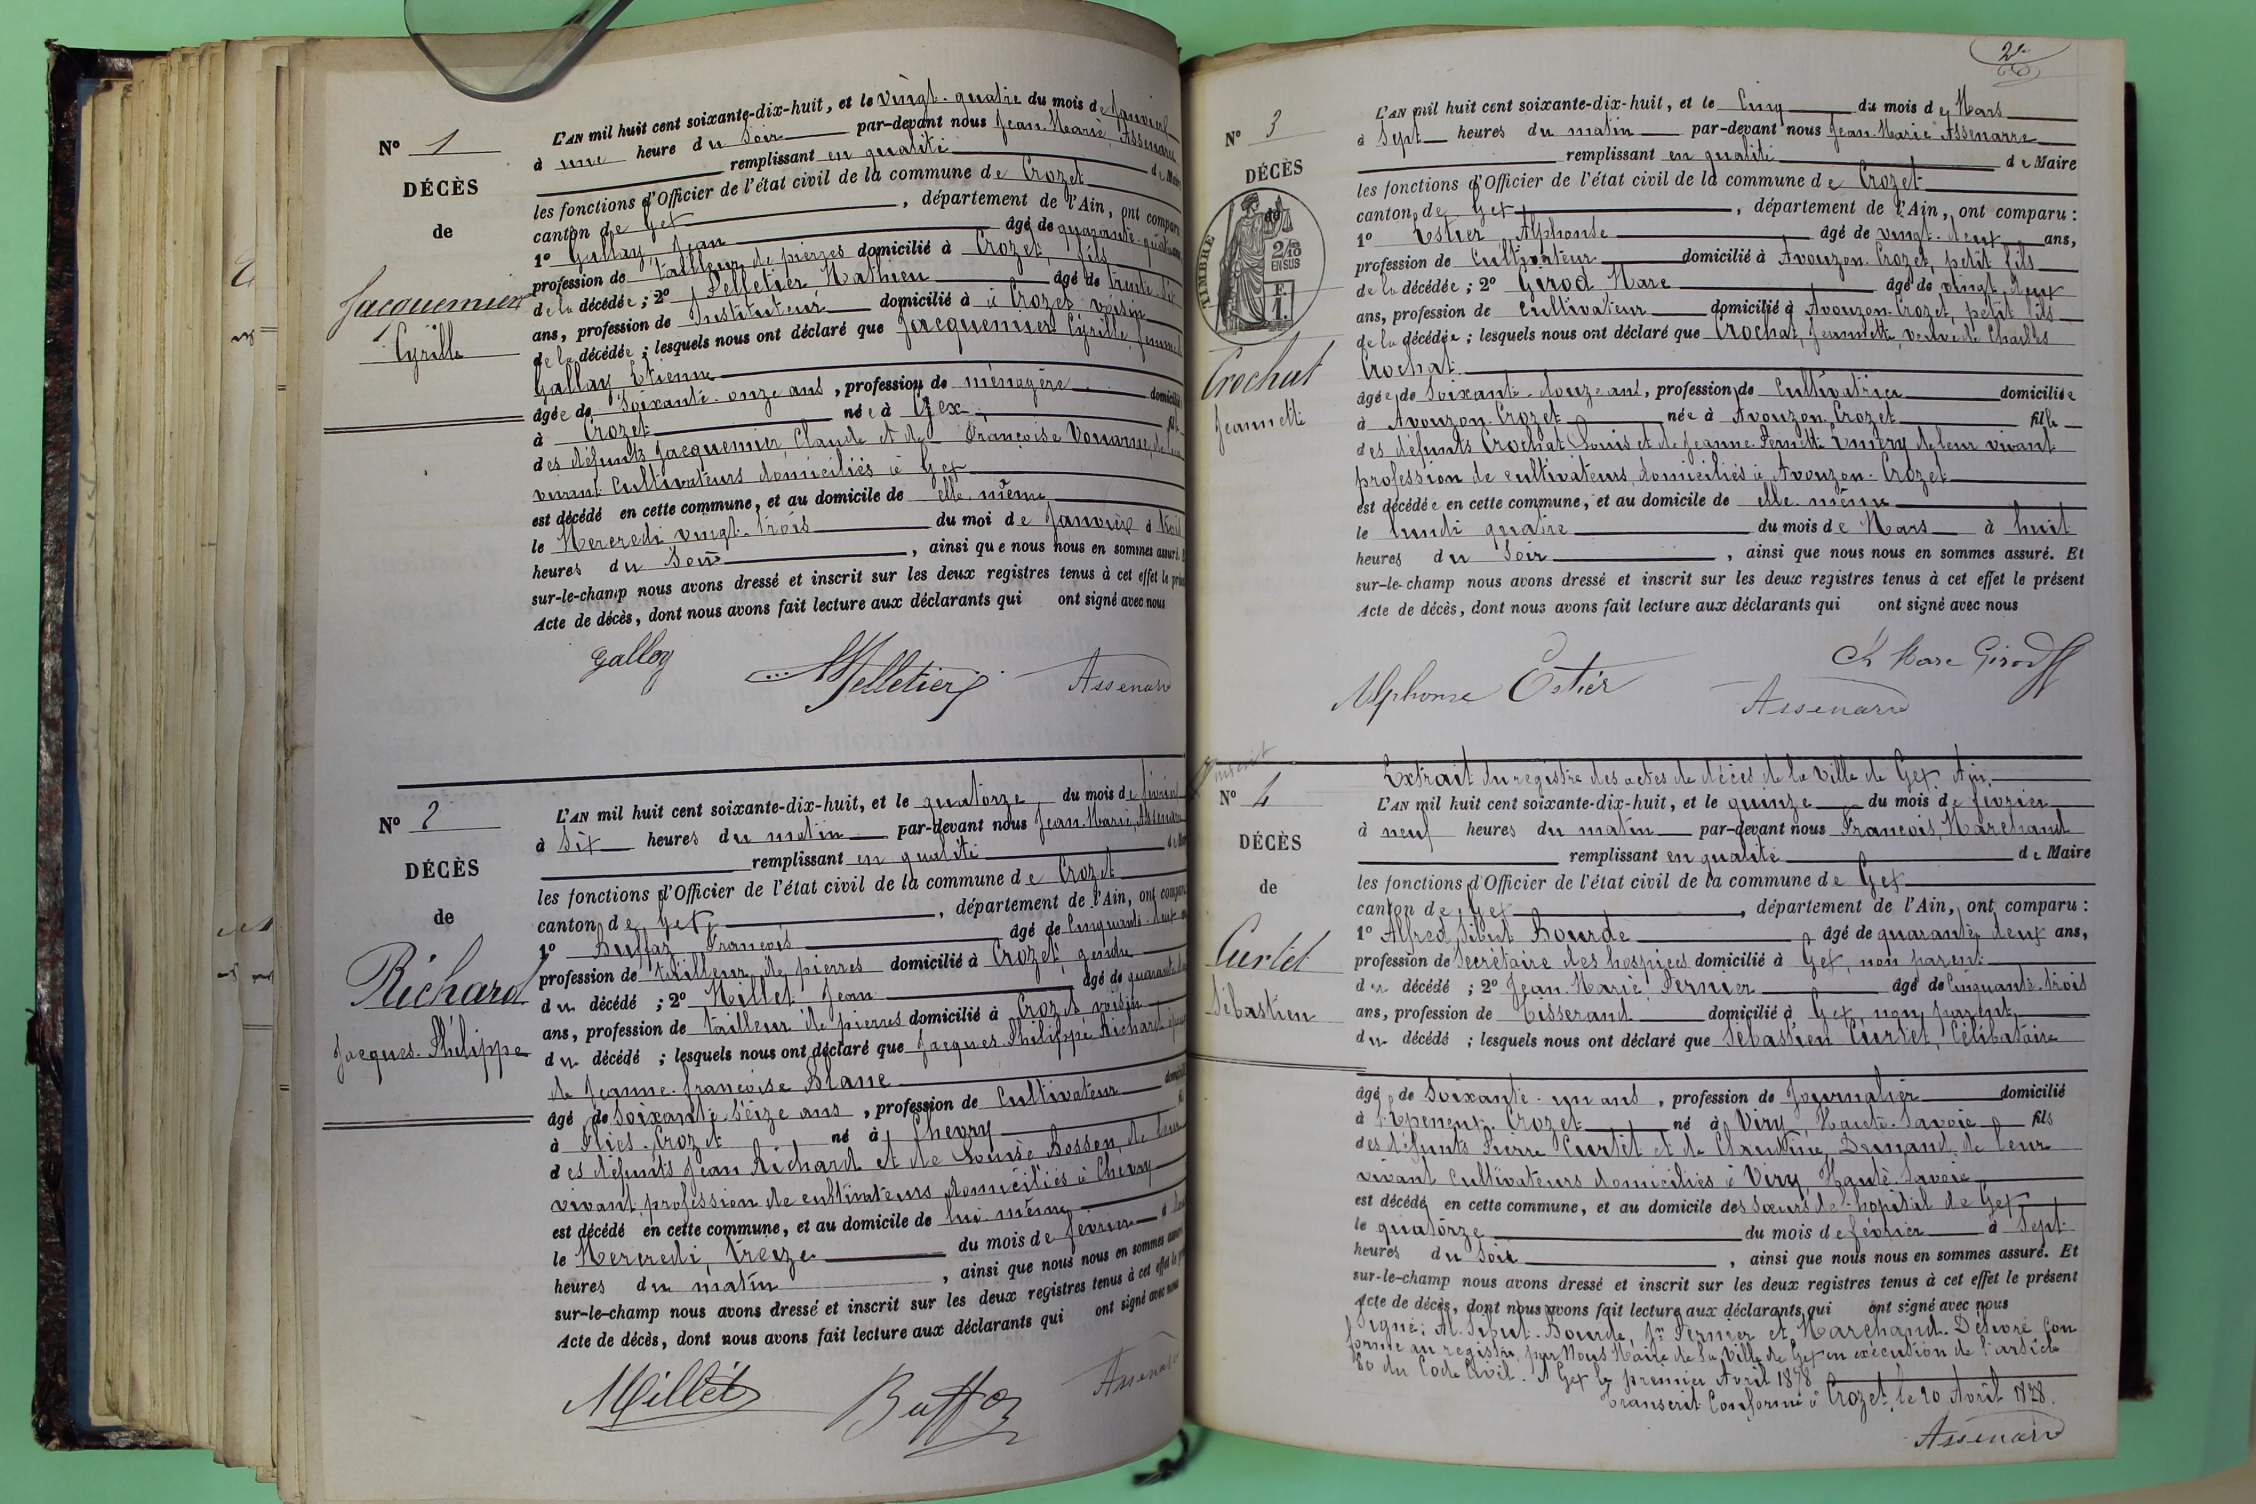 N° 1
DÉCÈS
de
Jacquemier
Cyrille
L'AN mil huit cent soixante-dix-huit, et le vingt-quatre du mois de Janvier
à une heure du Soir par-devant nous Jean-Marie Assenard
remplissant en qualité de Maire
les fonctions d'Officier de l'état civil de la commune de Crozet
canton de Gex, département de l'Ain, ont comparu
1° Gallay, Jean âgé de quarante-quatre ans
profession de tailleur de pierres domicilié à Crozet, fils
de la décédée ; 2° Pelletier Mathieu âgé de trente-six
ans, profession de Instituteur domicilié à à Crozet voisin
de la décédée ; lesquels nous ont déclaré que Jacquemier Cyrille, femme
Gallay Etienne
âgée de Soixante-onze ans, profession de ménagère domicilié
à Crozet née à Gex, fil
des défunts Jacquemier, Claude et de Françoise Vouarne, de leur
vivant Cultivateurs domiciliés à Gex
est décédé en cette commune, et au domicile de elle-même
le Mercredi vingt-trois du moi de Janvier à trois
heures du Soir, ainsi que nous nous en sommes assuré. Et
sur-le-champ nous avons dressé et inscrit sur les deux registres tenus à cet effet le présent
Acte de décès, dont nous avons fait lecture aux déclarants qui ont signé avec nous
Gallay MPelletier Assenard
N° 2
DÉCÈS
de
Richard
Jacques-Philippe
L'AN mil huit cent soixante-dix-huit, et le quatorze du mois de février
à Six heures du matin par-devant nous Jean-Marie, Assenard
remplissant en qualité de Maire
les fonctions d'Officier de l'état civil de la commune de Crozet
canton de Gex, département de l'Ain, ont comparu
1° Buffaz François âgé de Cinquante-deux ans
profession de tailleur de pierres domicilié à Crozet, gendre
du décédé ; 2° Millet Jean âgé de quarante
ans, profession de tailleur de pierres domicilié à Crozet voisin
du décédé ; lesquels nous ont déclaré que Jacques-Philippe Richard, époux
de Jeanne-françoise Blanc
âgé de Soixante Seize ans, profession de Cultivateur domicilié
à Flies-Crozet né à Chevry
des défunts Jean Richard et de Louise Bossen, de leur
vivant, profession de cultivateurs domiciliés à Chevry
est décédé en cette commune, et au domicile de lui-même
le Mercredi, treize du mois de février à
heures du matin, ainsi que nous nous en sommes assuré
sur-le-champ nous avons dressé et inscrit sur les deux registres tenus à cet effet le
Acte de décès, dont nous avons fait lecture aux déclarants qui ont signé avec nous
Millet Buffaz Assenard
2e
N° 3
DÉCÈS
de
TIMBRE
2/10
EN SUS
F.
1.
Crochat
Jeannette
L'AN mil huit cent soixante-dix-huit, et le Cinq du mois de Mars
à Sept heures du matin par-devant nous Jean-Marie Assenarre
remplissant en qualité de Maire
les fonctions d'Officier de l'état civil de la commune de Crozet
canton de Gex, département de l'Ain, ont comparu :
1° Estier, Alphonse âgé de vingt-deux ans,
profession de Cultivateur domicilié à Avouzon-Crozet, petit fils
de la décédée ; 2° Girod Marc âgé de vingt-deux
ans, profession de Cultivateur domicilié à Avouzon-Crozet, petit fils
de la décédée ; lesquels nous ont déclaré que Crochat, Jeannette, veuve de Charles
Crochat
âgée de Soixante-douze ans, profession de Cultivatrice domiciliée
à Avouzon-Crozet née à Avouzon-Crozet fille
des défunts Crochat Louis et de Jeanne-Pernette Emery de leur vivant
profession de cultivateurs, domiciliés à Avouzon-Crozet
est décédée en cette commune, et au domicile de elle-même
le lundi quatre du mois de Mars à huit
heures du Soir, ainsi que nous nous en sommes assuré. Et
sur-le-champ nous avons dressé et inscrit sur les deux registres tenus à cet effet le présent
Acte de décès, dont nous avons fait lecture aux déclarants qui ont signé avec nous
Alphonse Estier Assenard Ch Marc Girod
N° 4
DÉCÈS
de
Curtet
Sébastien
Extrait du registre des actes de décès de la ville de Gex Ain
L'AN mil huit cent soixante-dix-huit, et le quinze du mois de février
à neuf heures du matin par-devant nous François, Marchand
remplissant en qualité de Maire
les fonctions d'Officier de l'état civil de la commune de Gex
canton de Gex, département de l'Ain, ont comparu :
1° Alfred Sibut Bourde âgé de quarante deux ans,
profession de Secrétaire des hospices domicilié à Gex, non parent
du décédé ; 2° Jean-Marie Pernier âgé de Cinquante-trois
ans, profession de Tisserand domicilié à Gex, non parent,
du décédé ; lesquels nous ont déclaré que Sébastien Curtet, Célibataire
âgé de Soixante-un ans, profession de Journalier domicilié
à l'Epeneux-Crozet né à Viry, Haute-Savoie fils
des défunts Pierre Curtet et de Claudine, Dunand, de leur
vivant Cultivateurs domiciliés à Viry, Haute-Savoie
est décédé en cette commune, et au domicile des Sœurs de l'hopital de Gex
le quatorze du mois de février à Sept
heures du Soir, ainsi que nous nous en sommes assuré. Et
sur-le-champ nous avons dressé et inscrit sur les deux registres tenus à cet effet le présent
Acte de décès, dont nous avons fait lecture aux déclarants qui ont signé avec nous
Signé : Al. Sibut-Bourde, Jn Pernier et Marchand. Délivré Con
forme au registre par Nous Maire de la Ville de Gex en exécution de l'article
80 du Code Civil. A Gex le premier Avril 1878
Transcrit Conforme à Crozet, le 20 Avril 1878.
Assenard